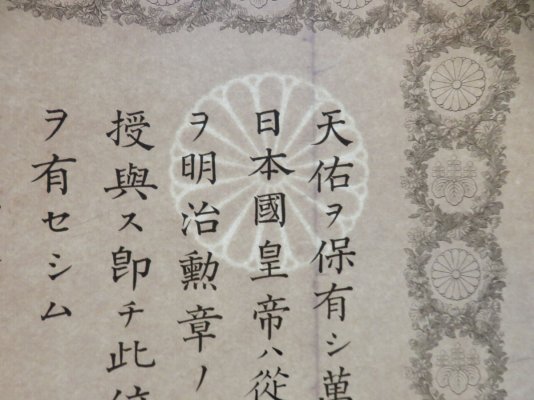 天佑ヲ保有シ萬
日本國皇帝ハ從
ヲ明治勳章ノ
授與ス卽チ此
ヲ有セシム